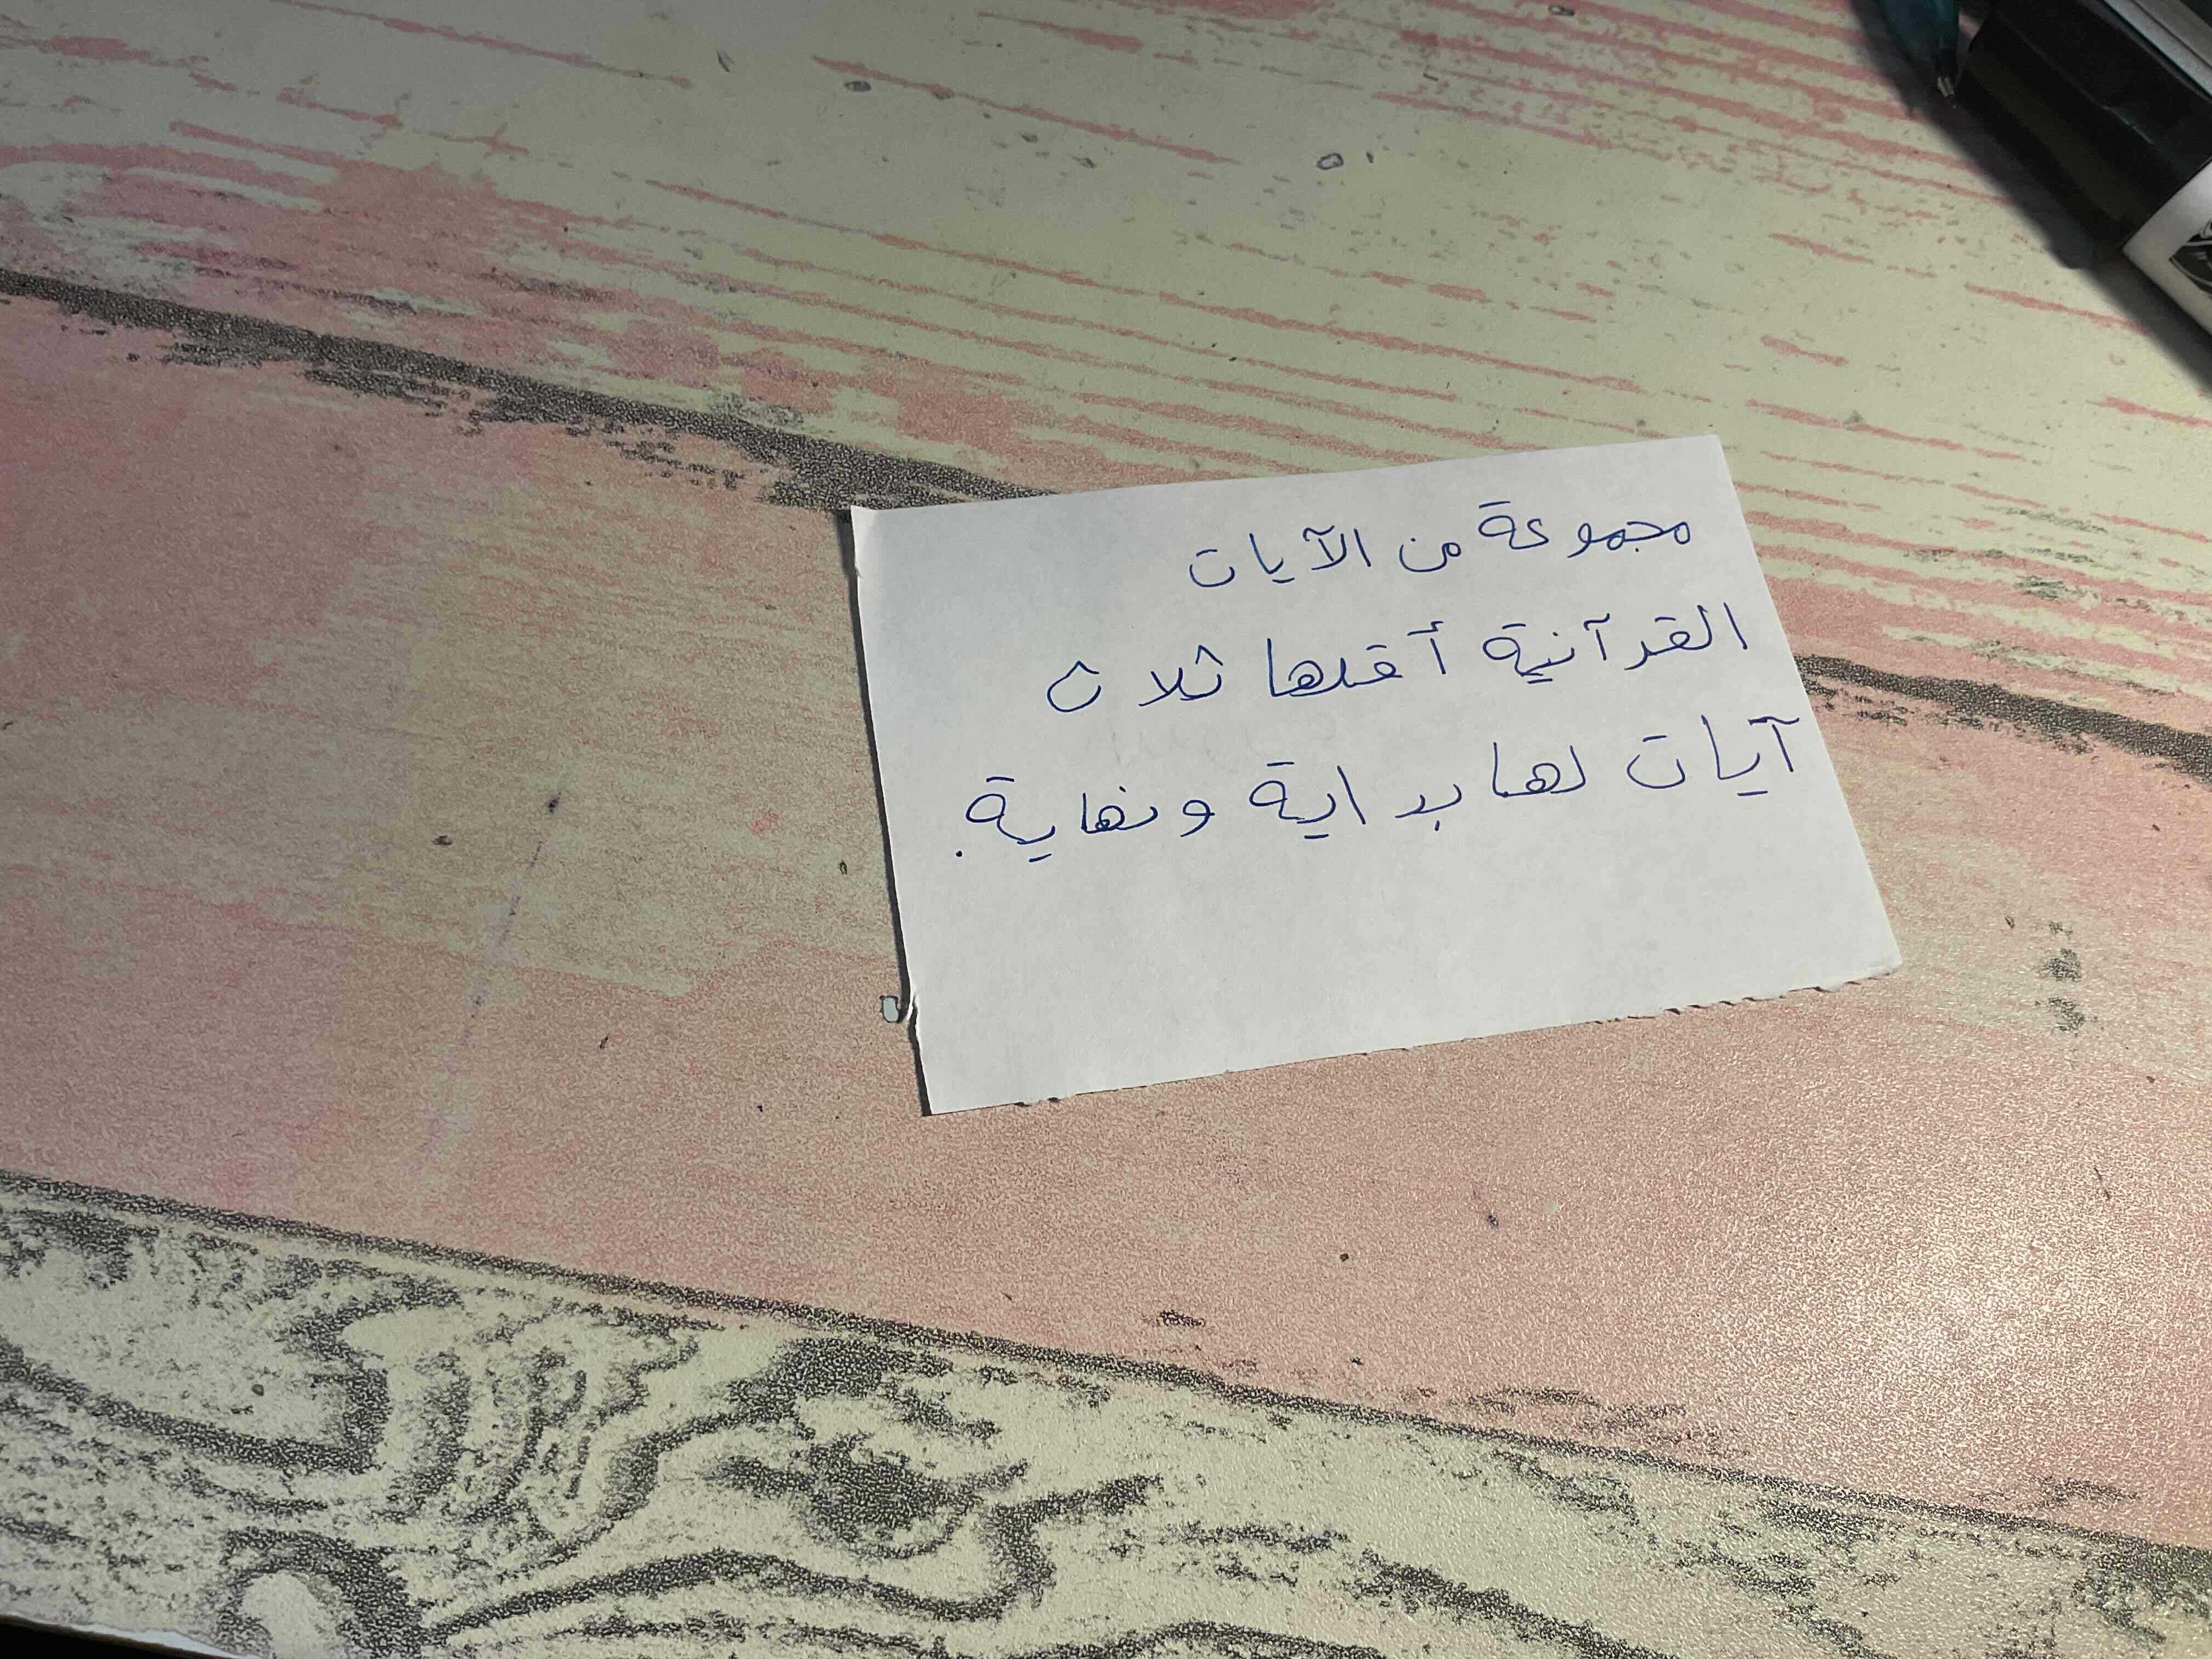 مجموعة من الآيات
القرآنية أقلها ثلاث
آيات لها بداية ونهاية.